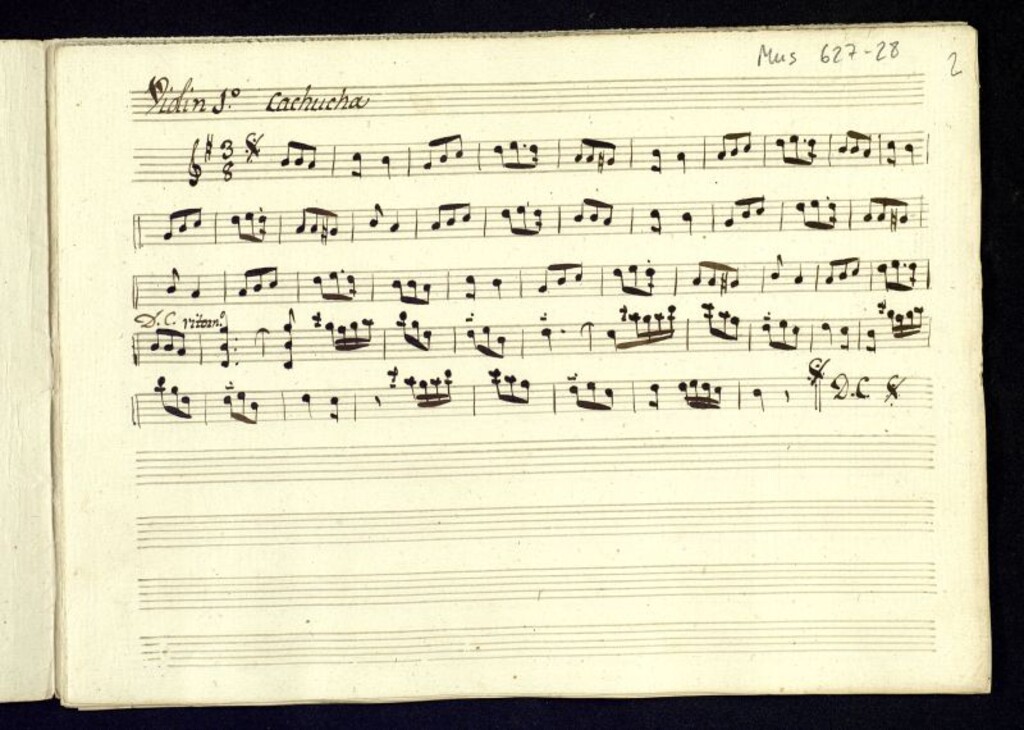 Mus 627-28 2
Violin 1º Cachucha
3
8
D.C. ritorn.º
D.C.